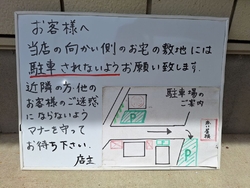 お客様へ
当店の向かい側のお宅の敷地には
駐車されないようお願い致します.
近隣の方・他の
お客様のご迷惑
にならないよう
マナーを守って
お待ち下さい.
店主
駐車場の
ご案内
P
P